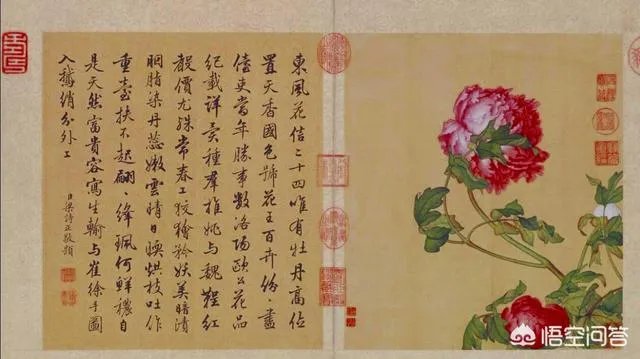 東風花信二十四唯有牡丹高位
置天香國色號花王百卉份〻盡
僮吏當年勝事數洛陽歐公花品
紀載詳異種羣推姚与魏鞓紅
價尤殊常春工狡獪矜妖美暗漬
胭脂染丹蕊嫩雲晴日暖烘枝吐作
重臺扶不起翩〻絳珮何鮮穠自
是天然富貴容寫生輸与崔徐手圖
入鵝綃分外工
臣梁詩正敬題
悟空问答